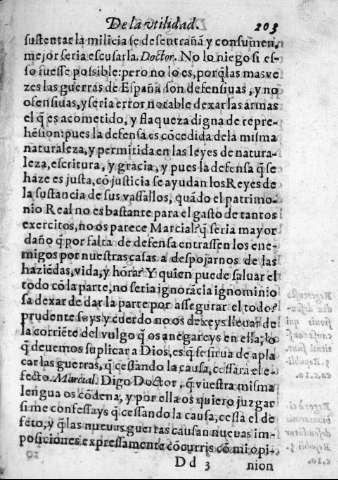 De la vtilidad. 203
sustentar la milicia se desentrañã y consumen,
mejor seria escusarla. Doctor. No lo niego si es-
so fuesse possible: pero no lo es, porq̃ las mas ve-
zes las guerras de España son defensiuas, y no
ofensiuas, y seria error notable dexar las armas
el q̃ es acometido, y flaqueza digna de repre-
hẽsion: pues la defensa es cõcedida de la misma
naturaleza, y permitida en las leyes de natura-
leza, escritura, y gracia, y pues la defensa q̃ se
haze es justa, cõ justicia se ayudan los Reyes de
la sustancia de sus vassallos, quãdo el patrimo-
nio Real no es bastante para el gasto de tantos
exercitos, no os parece Marcial q̃ seria mayor
daño q̃ por falta de defensa entrassen los ene-
migos por nuestras casas a despojarnos de las
haziẽdas, vida, y hõra? Y quien puede saluar el
todo cõ la parte, no seria ignorãcia ignominio
sa dexar de dar la parte por assegurar el todo?
prudente soys y cuerdo no os dexeys lleuar de
la corriẽte del vulgo q̃ os anegareys en ella, lo
q̃ deuemos suplicar a Dios, es q̃ se sirua de apla
car las guerras, q̃ cessando la causa, cessarà el e-
fecto. Marcial. Digo Doctor, q̃ vuestra misma
lengua os cõdena, y por ella os quiero juzgar
si me confessays q̃ cessando la causa, cessa el de
feto, y q̃ las nueuas guerras causan nueuas im-
posiciones expressamente cõcurris cõ mi opi-
Dd 3 nion